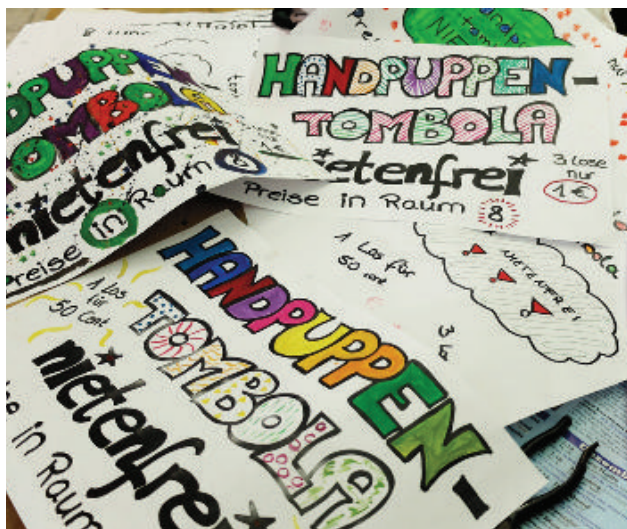 HANDPUPPEN-
TOMBOLA
nietenfrei
3 Lose
nur
1 €
Preise in Raum 8
DPUPPEN
TOMBOLA
nietenfrei
Preise in Raum
1 Los für
50 cent
NIETENFREI
3 Lo
1 Los
für
50 Cent
HANDPUPPEN-
TOMBOLA
nietenfrei
in Raum